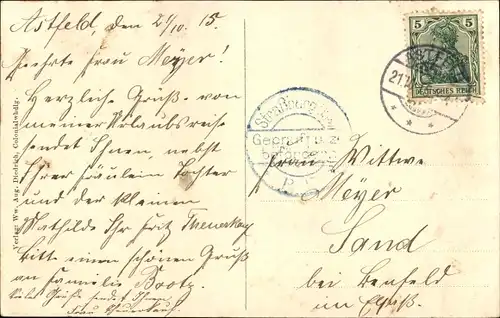 Astfeld, den 21/10. 15.
Geehrte Frau Meyer!
Herzliche Grüße von
meiner Urlaubsreise
sendet Ihnen, nebst
Ihrer Fräulein Tochter
und der kleinen
Mathilde Ihr Fritz
Bitte einen schönen Gruß
an Familie Bootz.
Viele Grüße sendet Ihnen
Frau
Verlag: Ww. Aug. Diedrich, Colonialwhdlg.
5 5
DEUTSCHES REICH
Straßburg
Geprüft u. zu
befördern
P
Frau Wittwe
Meyer
Sand
bei Benfeld
im Elsaß.